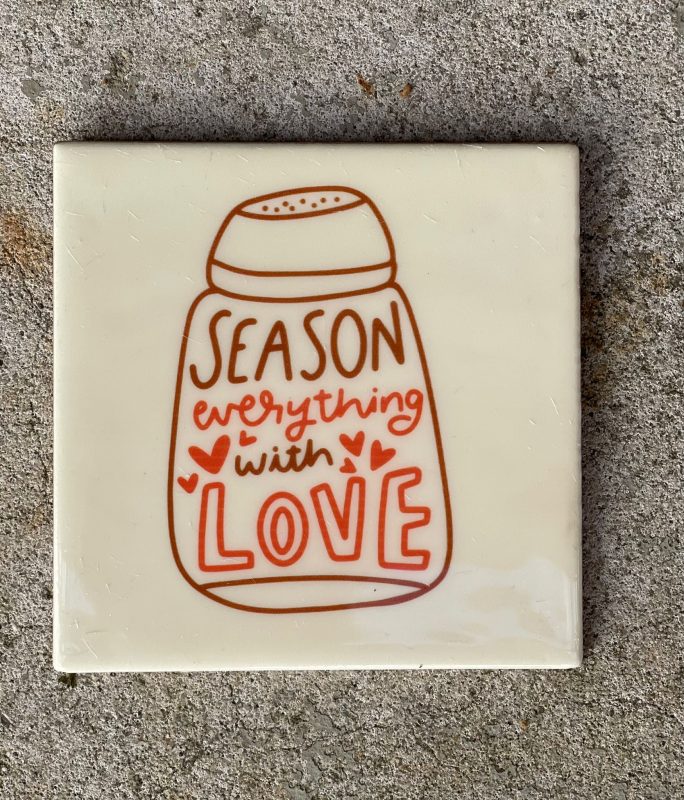 SEASON
everything
with
LOVE